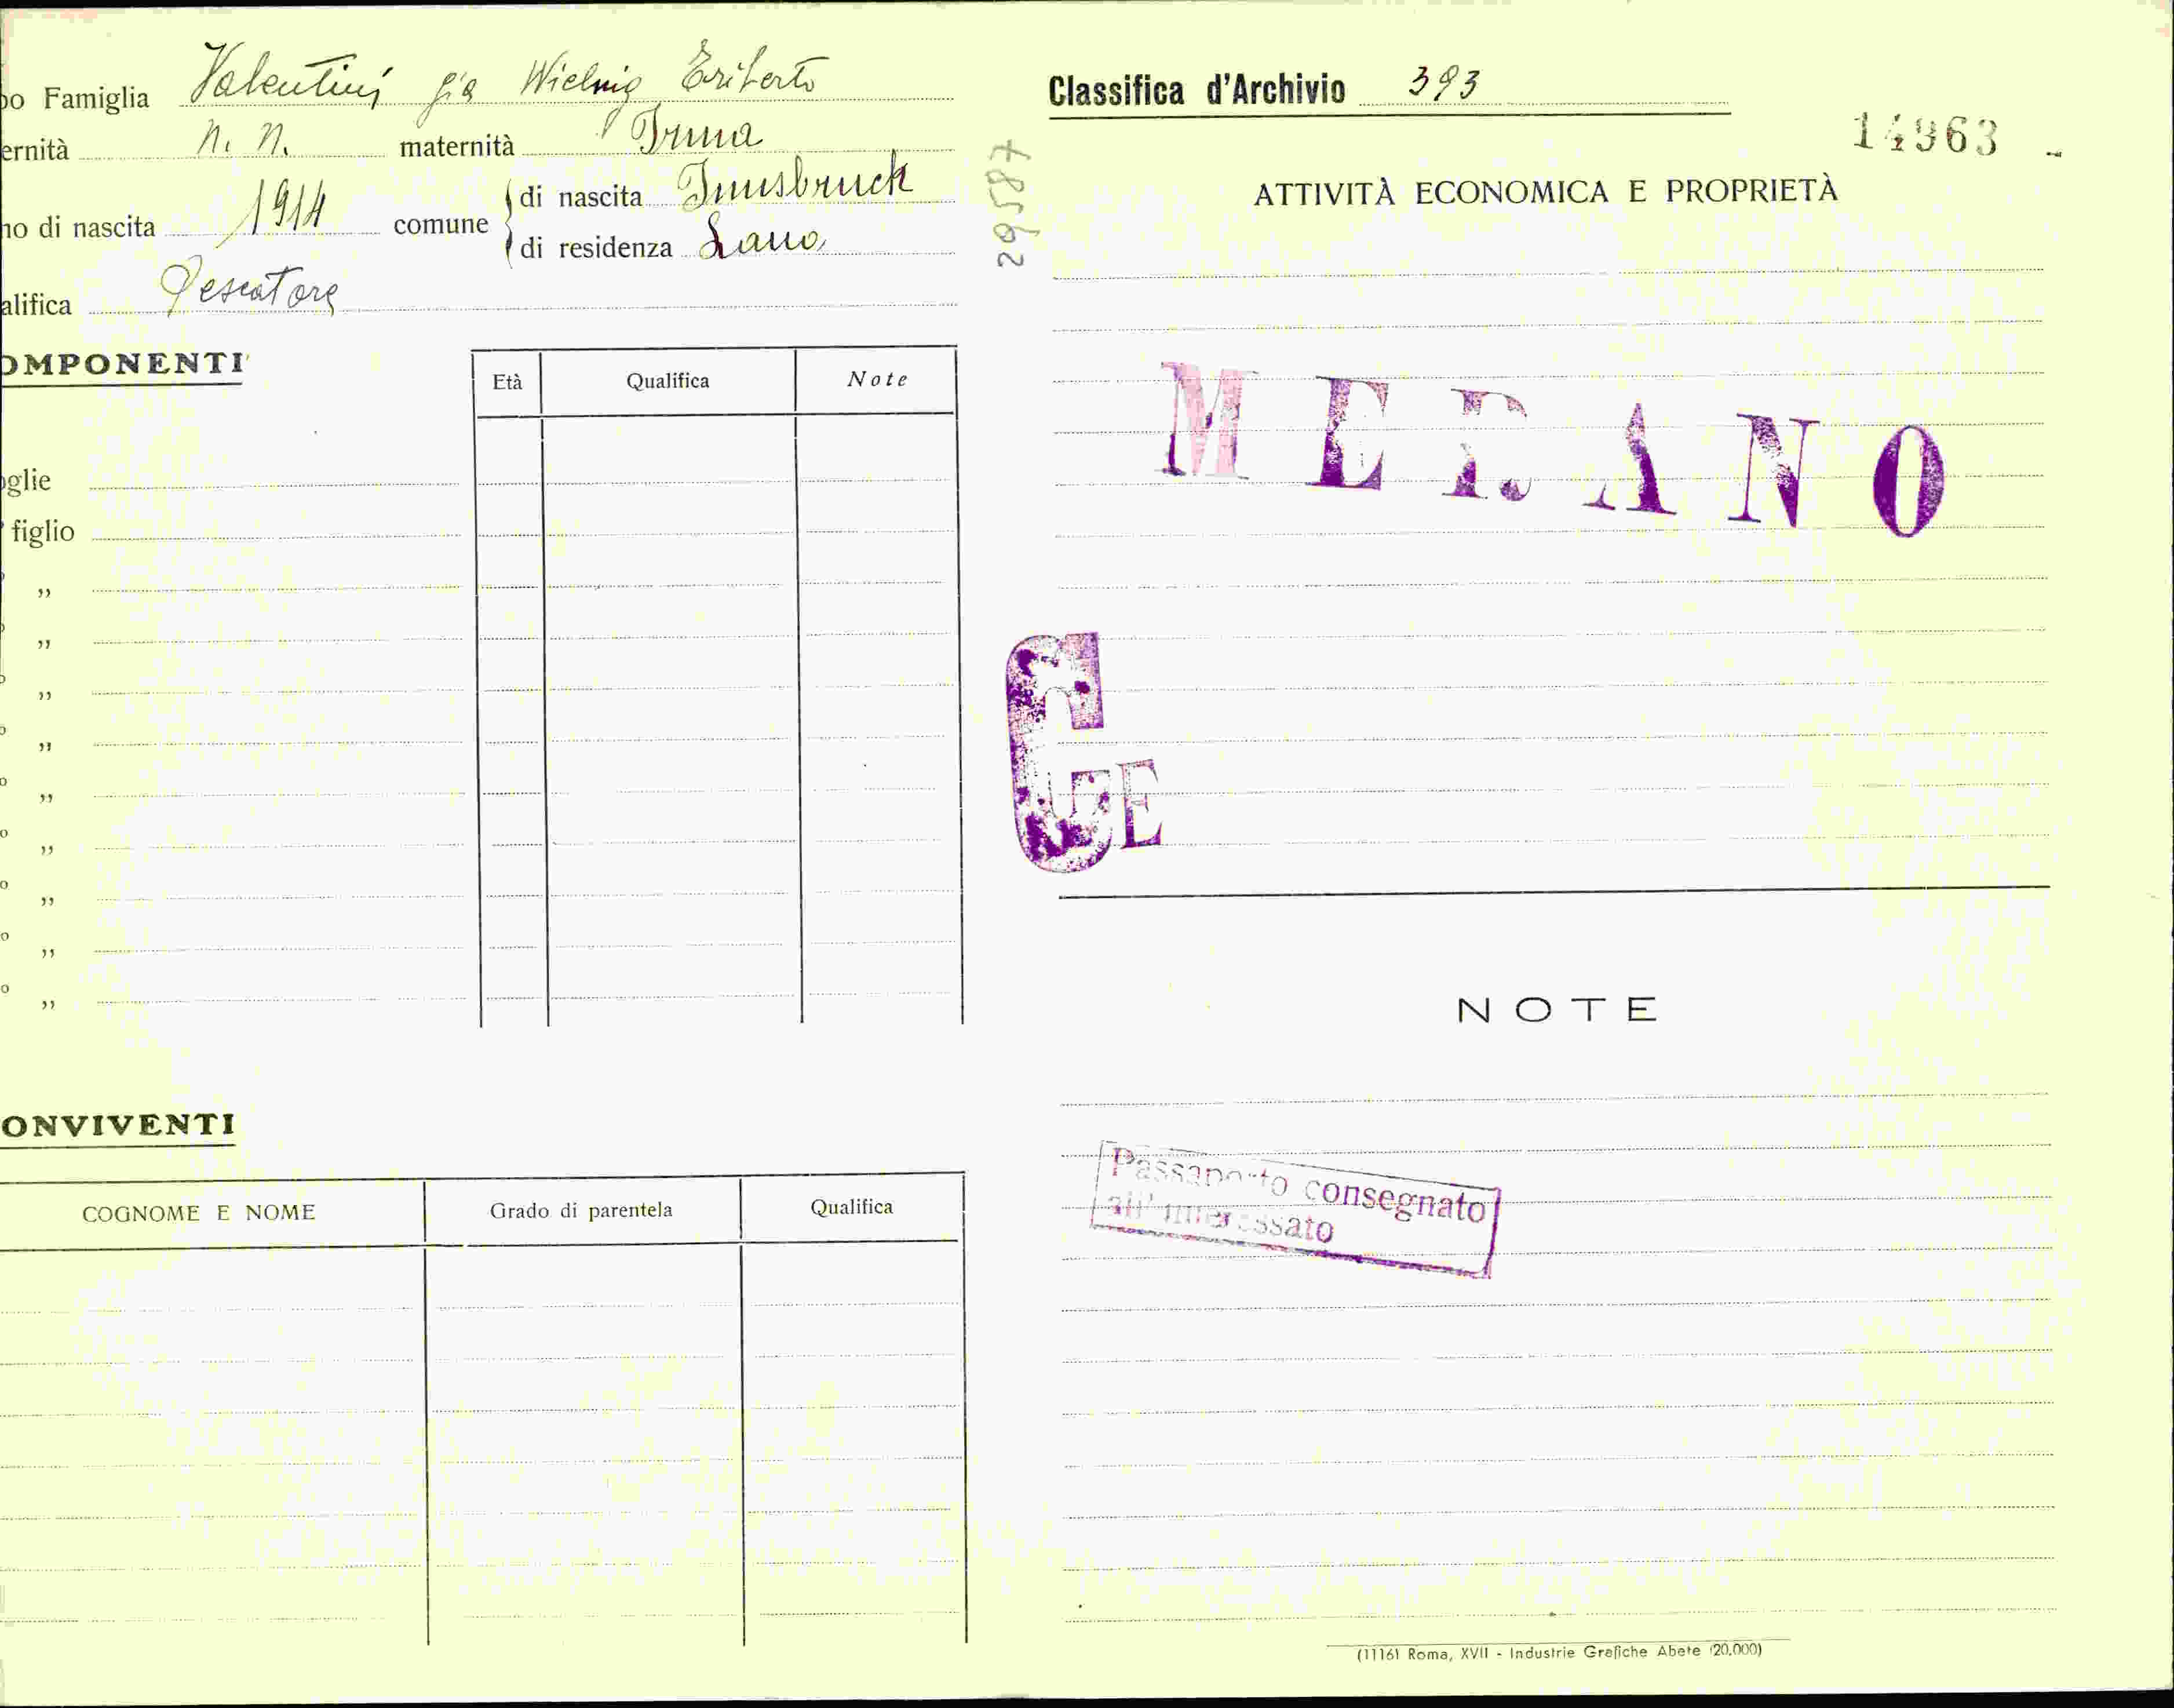 po Famiglia Valentini già Wielnig Eriberto
ernità n. n. maternità Irma
no di nascita 1914 comune di nascita Innsbruck
di residenza Lana
alifica Pescatore
OMPONENTI
Età Qualifica Note
oglie
figlio
„
„
„
„
„
„
„
„
„
ONVIVENTI
COGNOME E NOME Grado di parentela Qualifica
295587
Classifica d'Archivio 393
14363 -
ATTIVITÀ ECONOMICA E PROPRIETÀ
MERANO
G
GE
NOTE
Passaporto consegnato
all'interessato
(11161 Roma, XVII - Industrie Grafiche Abete (20.000)